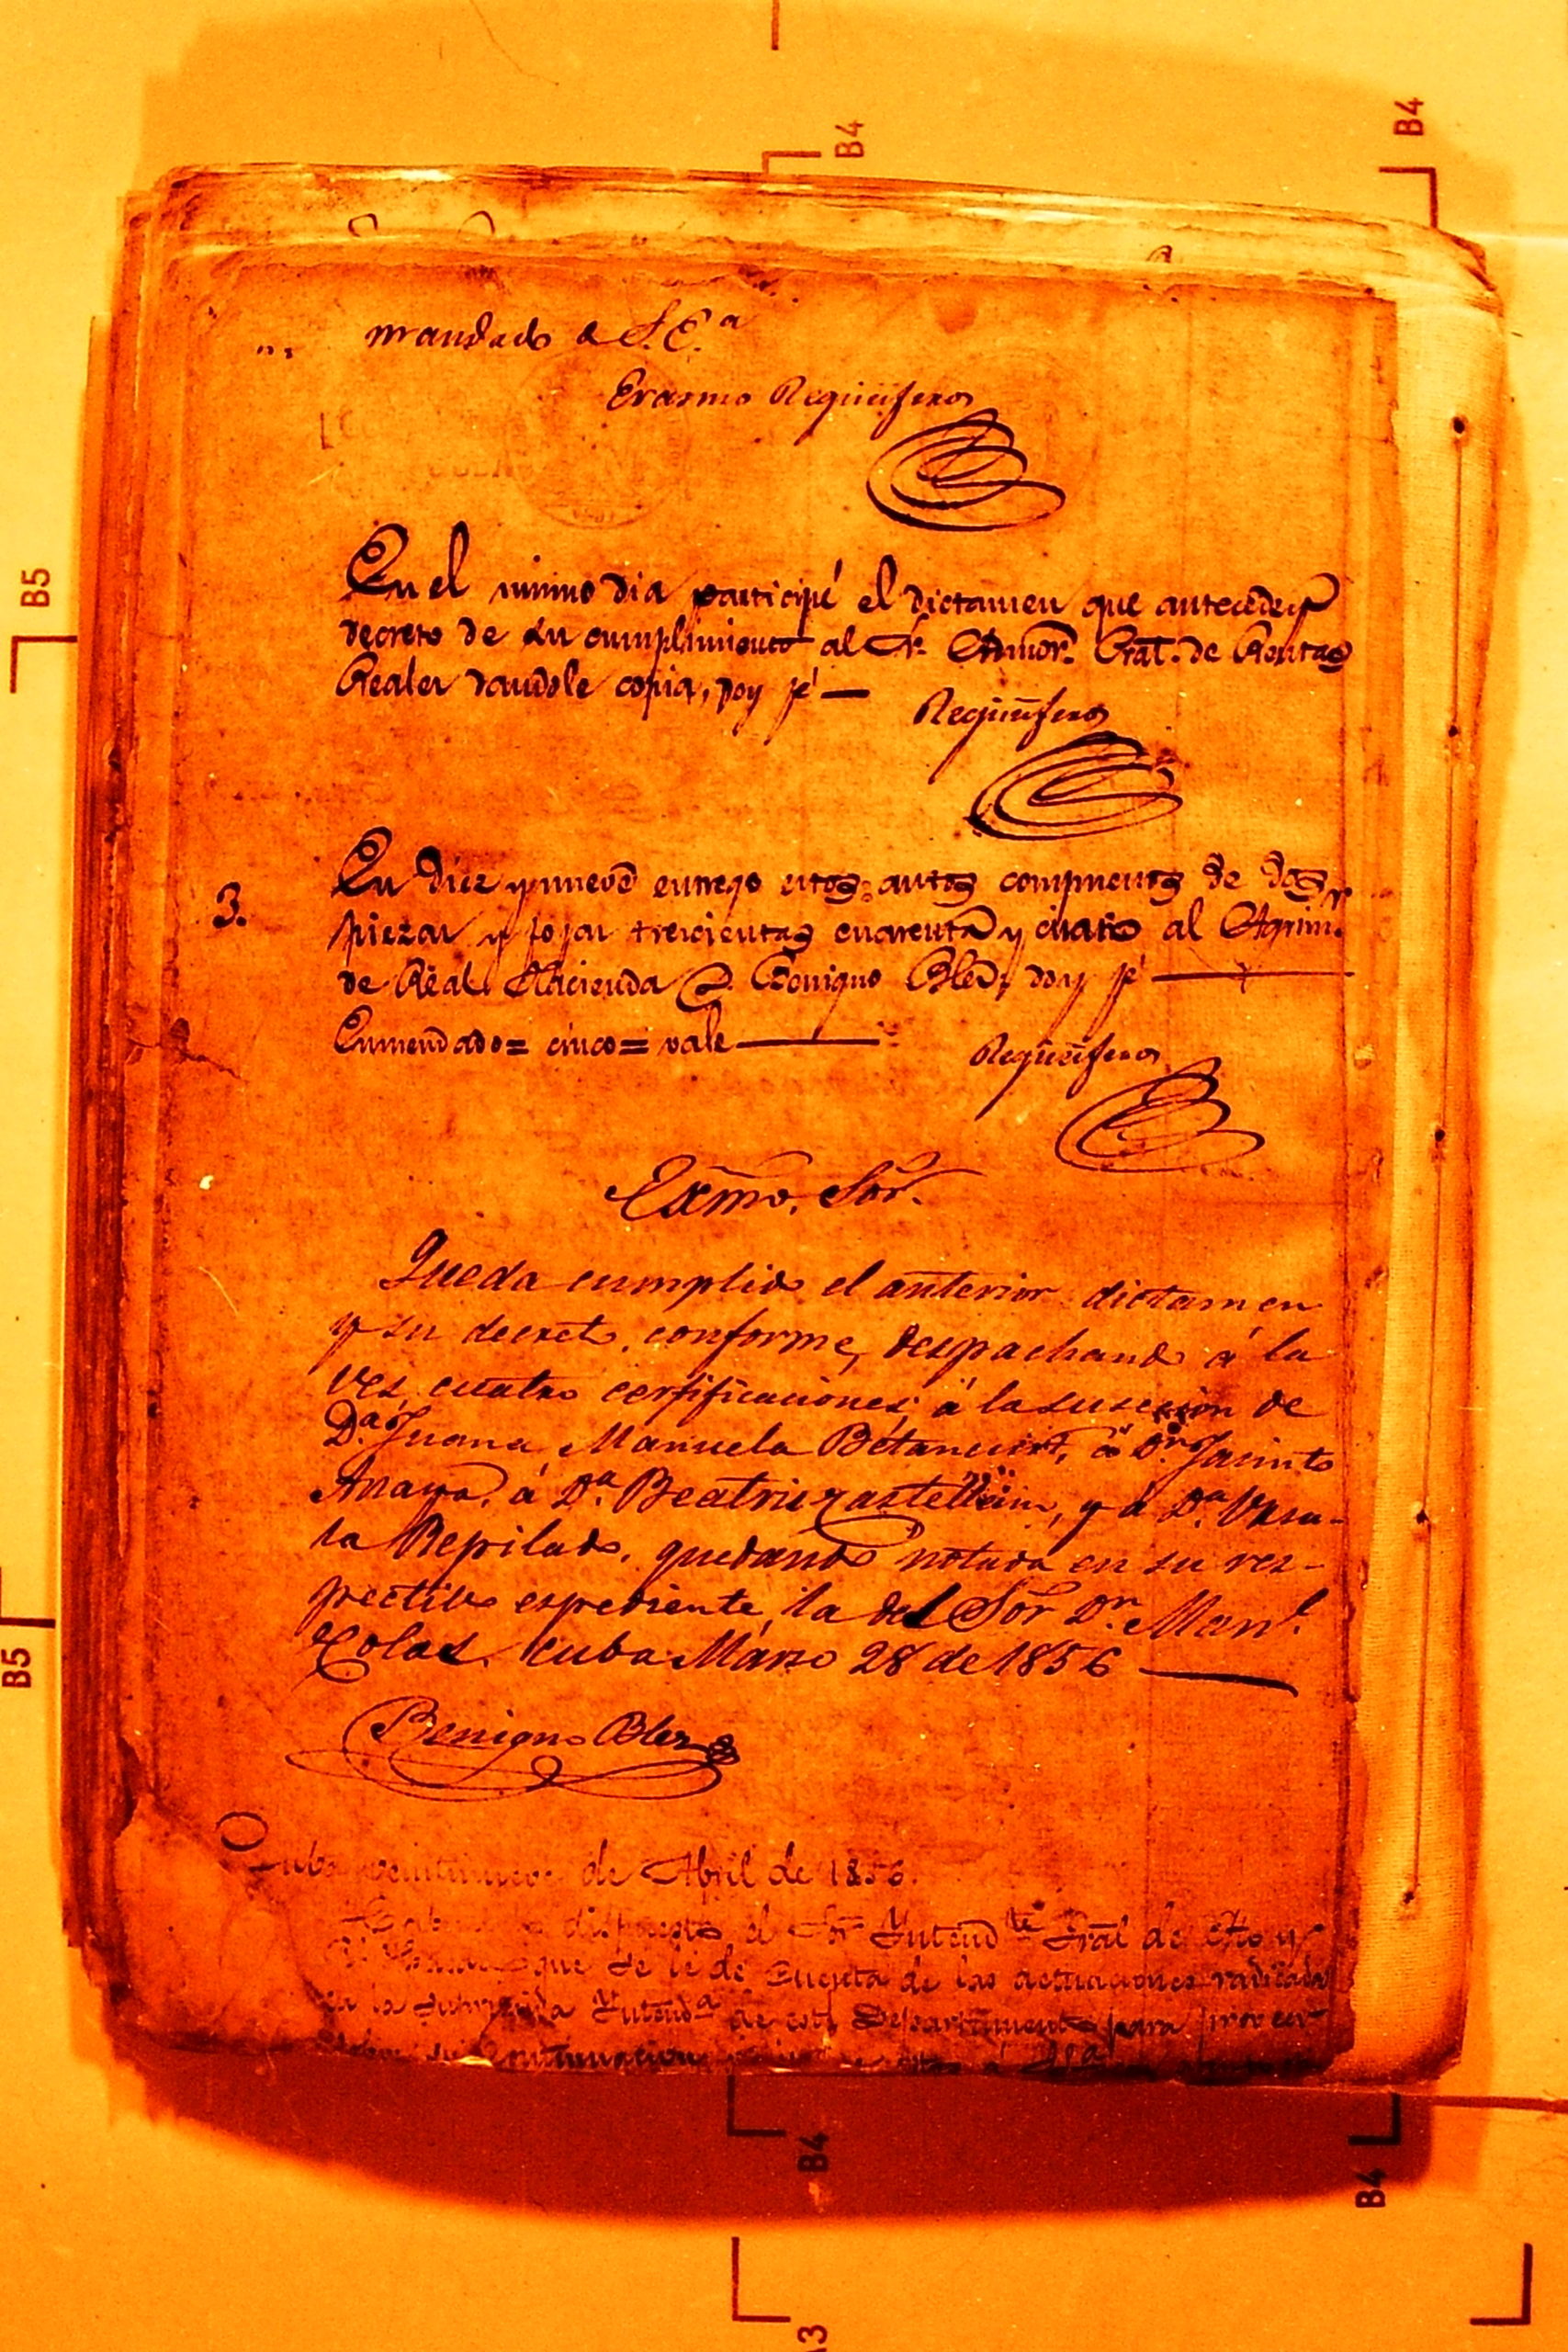 mandado de S.E.ª
Erasmo Regüeiferos
En el mismo dia participé el dictamen que antecede y
decreto de su cumplimiento al Sr. Admor. Gral. de Rentas
Reales dandole copia, doy fé —
Regüeiferos
3.
En diez y nueve entrego estos autos compuestos de dos
piezas y fojas trescientas cuarenta y cinco al Agrim.
de Real Hacienda D. Benigno Blez, doy fé —
Enmendado = cinco = vale —
Regüeiferos
Exmo. Sor.
Queda cumplido el anterior dictamen
y su decreto conforme, despachando á la
vez cuatro certificaciones á la sucesion de
D.ª Juana Manuela Betancourt, á D.n Jacinto
Anaya, á D.ª Beatriz Castellain, y á D.ª Ursu-
la Repilado, quedando notada en su res-
pectivo espediente la del Sor Dn. Man.l
Colás. Cuba Marzo 28 de 1856 —
Benigno Blez
Cuba veintinueve de Abril de 1856.
dispuesto el Sor Intend.te Gral de Eto y
que se le dé cuenta de las actuaciones radicadas
en la Intend.ª de este Departamento para proveer
sobre su continuacion
B4
B4
B5
B5
B4
B4
A3